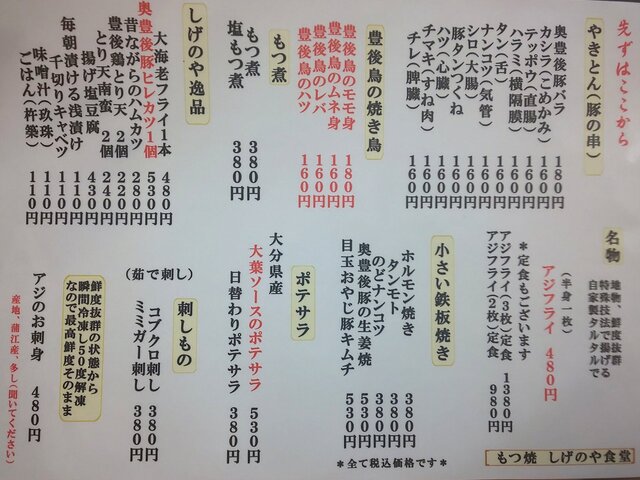 先ずはここから
やきとん(豚の串)
奥豊後豚バラ 180円
カシラ(こめかみ) 160円
テッポウ(直腸) 160円
ハラミ(横隔膜) 160円
タン(舌) 160円
ナンコツ(気管) 160円
シロ(大腸) 160円
豚タンつくね 160円
ハツ(心臓) 160円
チマキ(すね肉) 160円
チレ(脾臓) 160円
豊後鳥の焼き鳥
豊後鳥のモモ身 180円
豊後鳥のムネ身 160円
豊後鳥のレバ 160円
豊後鳥のハツ 160円
もつ煮
もつ煮 380円
塩もつ煮 380円
しげのや逸品
大海老フライ1本 480円
奥豊後豚ヒレカツ1個 530円
昔ながらのハムカツ 280円
豊後鶏とり天 2個 220円
とり天南蛮 2個 240円
揚げ塩豆腐 430円
毎朝漬ける浅漬け 110円
千切りキャベツ 110円
味噌汁(玖珠) 110円
ごはん(杵築) 110円
名物
地物、鮮度抜群
特殊技法で揚げる
自家製タルタルで
アジフライ 480円
(半身一枚)
*定食もございます
アジフライ(3枚)定食 1380円
アジフライ(2枚)定食 980円
小さい鉄板焼き
ホルモン焼き 380円
タンモト 380円
のどナンコツ 380円
奥豊後豚の生姜焼 530円
目玉おやじ豚キムチ 530円
ポテサラ
大分県産
大葉ソースのポテサラ 530円
日替わりポテサラ 380円
刺しもの
(茹で刺し)
コブクロ刺し 380円
ミミガー刺し 380円
鮮度抜群の状態から
瞬間冷凍し50度解凍
なので最高鮮度そのまま
アジのお刺身 480円
産地、蒲江産、多し(聞いてください)
*全て税込価格です*
もつ焼 しげのや食堂